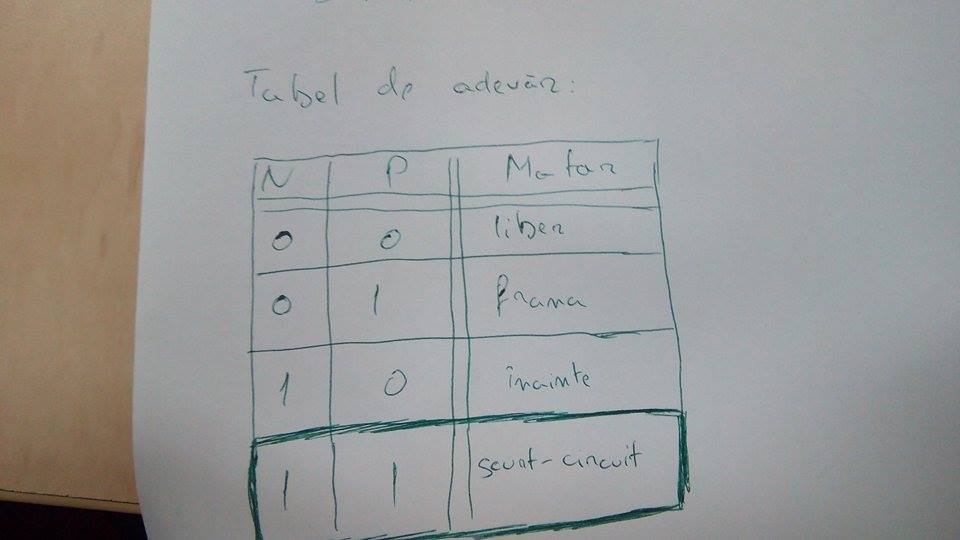 Tabel de adevăr:
N P Motor
0 0 liber
0 1 frana
1 0 înainte
1 1 scurt-circuit